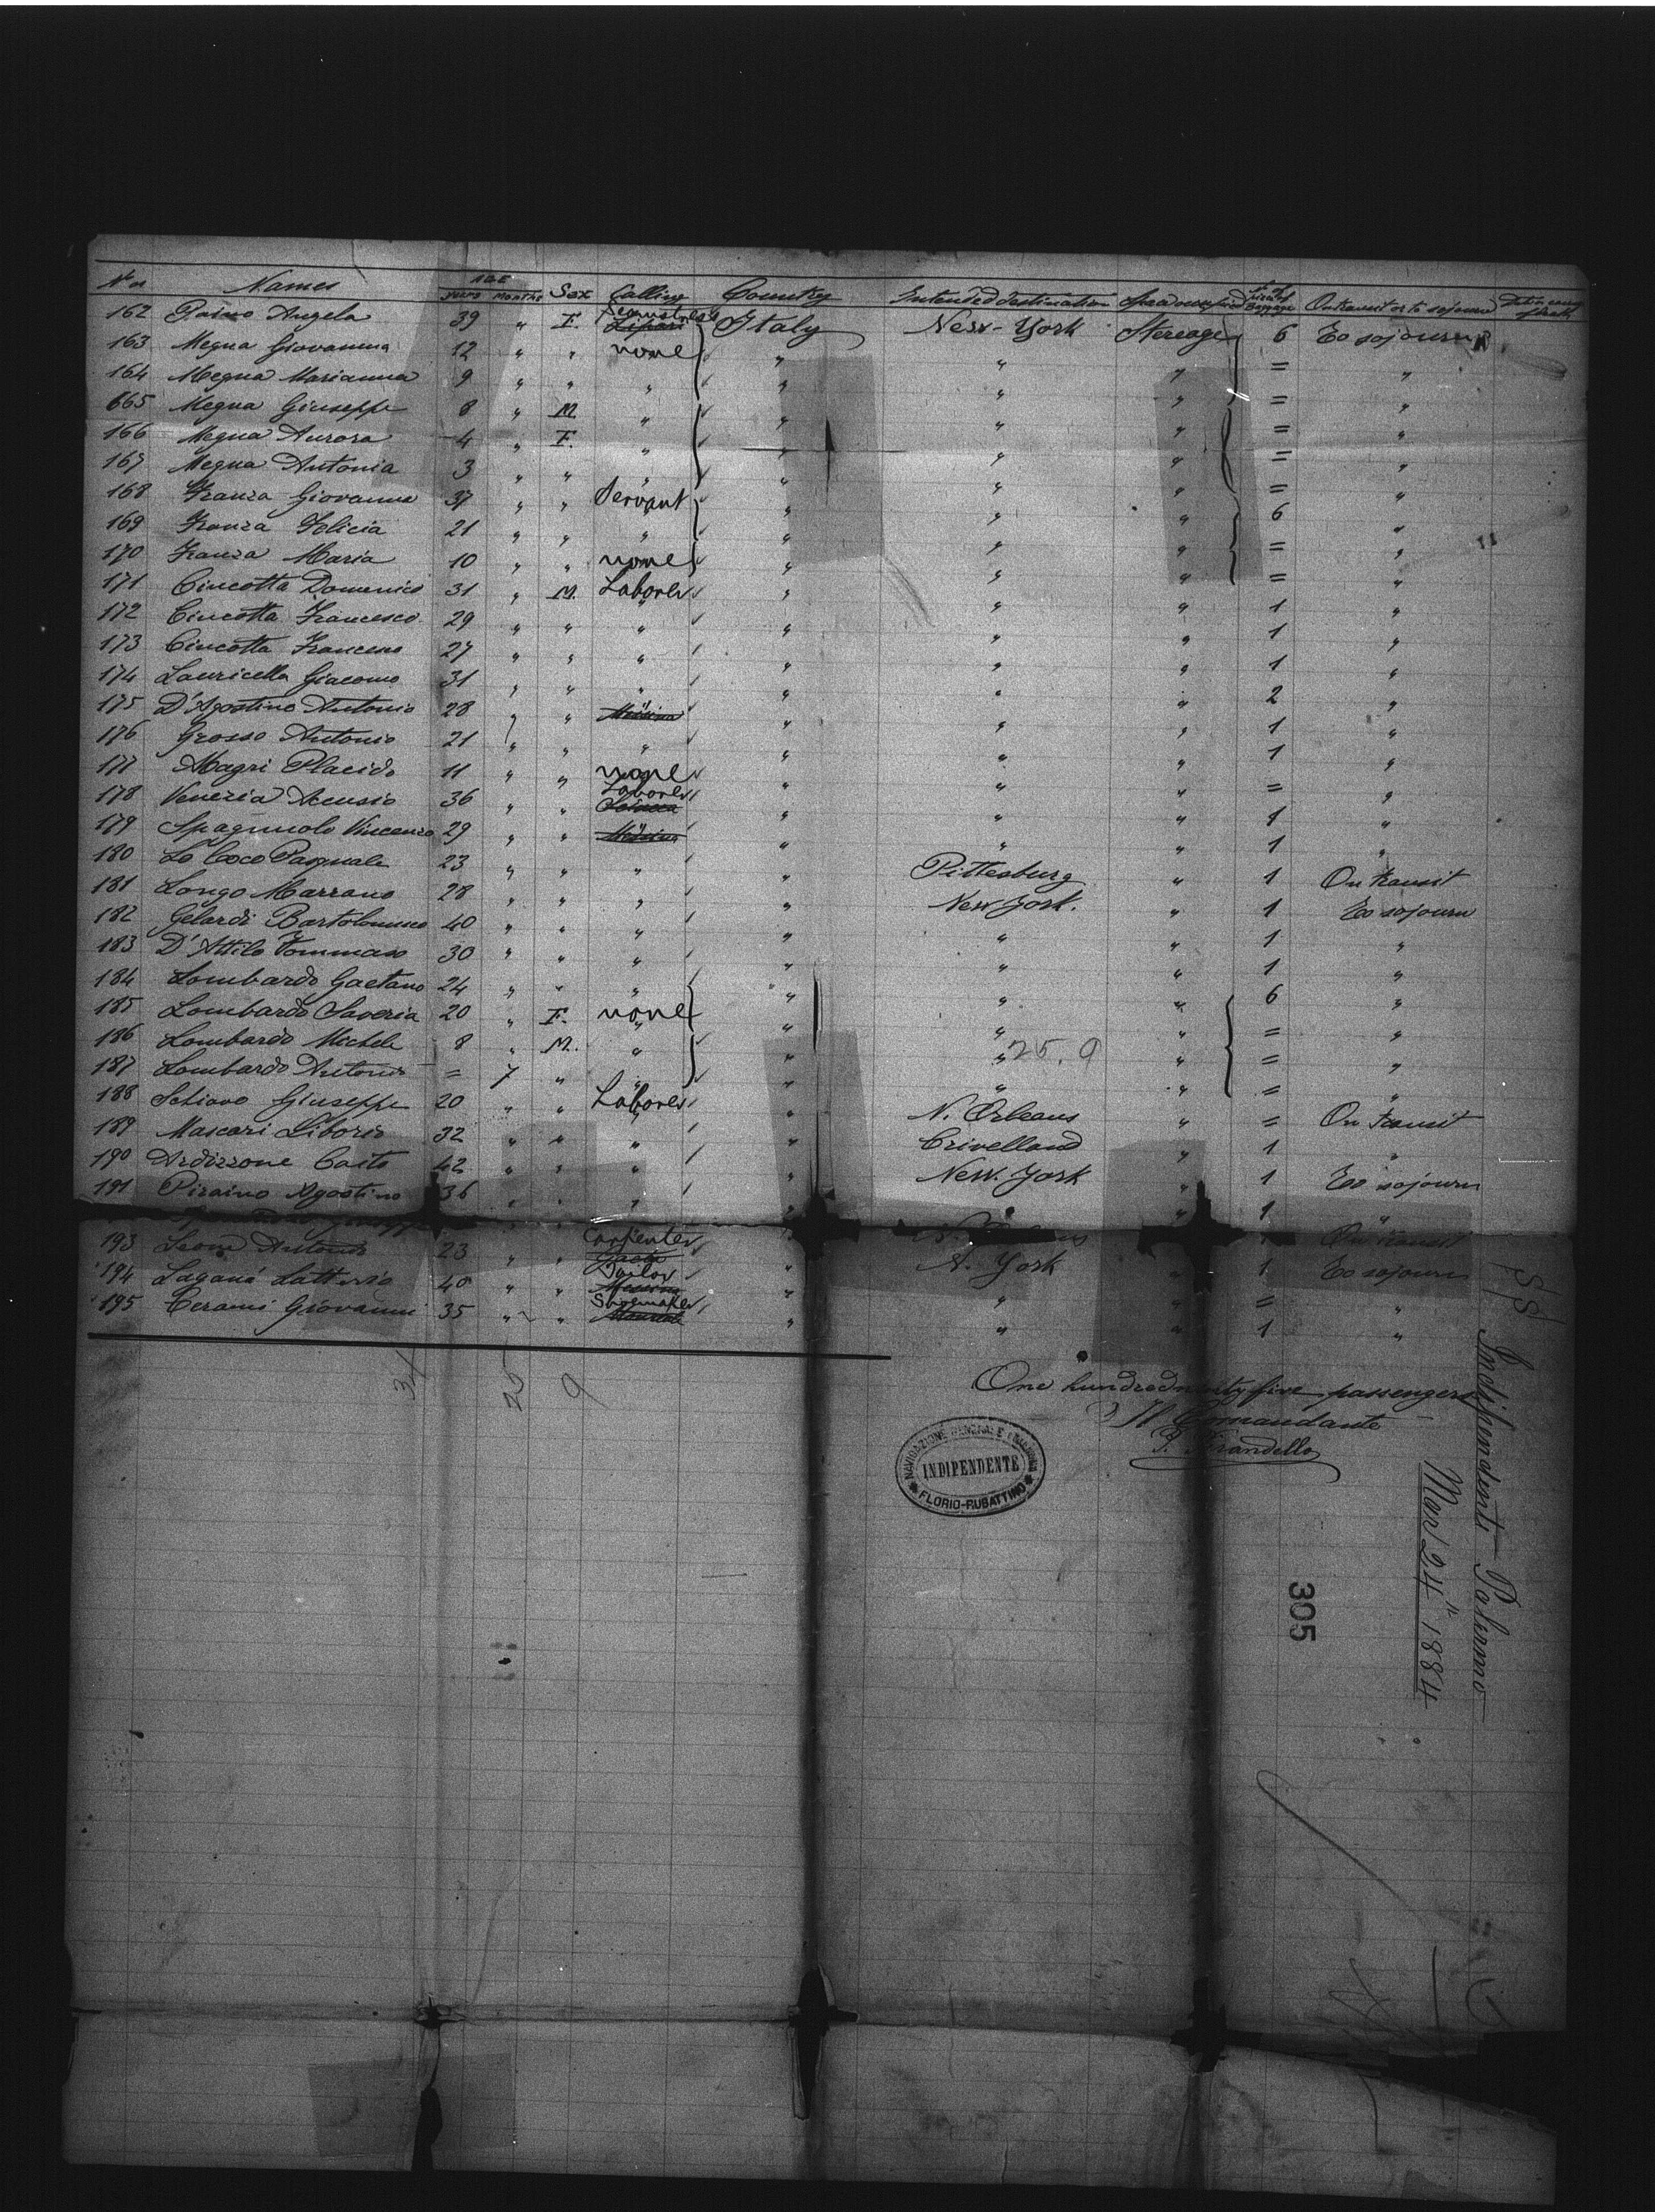 No. Names AGE years months Sex Calling Country Intended destination Space occupied No. of pieces of Baggage On transit or to sojourn
162 Paino Angela 39 " F. Seamstress Lipari Italy New-York Stereage 6 To sojourn
163 Megna Giovanna 12 " " none " " " = "
164 Megna Marianna 9 " " " " " " = "
165 Megna Giuseppe 8 " M. " " " " = "
166 Megna Aurora 4 " F. " " " " = "
167 Megna Antonia 3 " " " " " " = "
168 Franza Giovanna 37 " " Servant " " " 6 "
169 Franza Felicia 21 " " " " " " = "
170 Franza Maria 10 " " none " " " = "
171 Cincotta Domenico 31 " M. Laborer " " " 1 "
172 Cincotta Francesco 29 " " " " " " 1 "
173 Cincotta Francesco 27 " " " " " " 1 "
174 Lauricella Giacomo 31 " " " " " " 2 "
175 D'Agostino Antonio 28 " " Messina " " " 1 "
176 Grosso Antonio 21 " " " " " " 1 "
177 Magri Placido 11 " " none " " " = "
178 Venezia Accursio 36 " " Laborer Sciacca " " " 1 "
179 Spagnuolo Vincenzo 29 " " Messina " " " 1 "
180 Lo Coco Pasquale 23 " " " " Pittesburg " 1 On transit
181 Longo Marrano 28 " " " " New York. " 1 To sojourn
182 Gelardi Bartolomeo 40 " " " " " " 1 "
183 D'Attilo Tommaso 30 " " " " " " 1 "
184 Lombardo Gaetano 24 " " " " " " 6 "
185 Lombardo Saveria 20 " F. none " " " = "
186 Lombardo Michele 8 " M. " " " 25. 9 " = "
187 Lombardo Antonio = 7 " " " " " = "
188 Schiavo Giuseppe 20 " " Laborer " N. Orleans " = On transit
189 Mascari Liborio 32 " " " " Crivelland " 1 "
190 Ardizzone Casto 42 " " " " New. York " 1 To sojourn
191 Piraino Agostino 36 " " " " " " 1 "
On transit
193 Leone Antonio 23 " " Carpenter " N. York " 1 To sojourn
194 Laganá Latterio 40 " " Tailor Messina " " " = "
195 Cerami Giovanni 35 " " Shoemaker " " " 1 "
34 25 9
One hundred ninty five passengers
Il Comandante
P. Pirandello
NAVIGAZIONE GENERALE ITALIANA
INDIPENDENTE
FLORIO-RUBATTINO
SS Indipendente Palermo
Mar 24" 1884
305